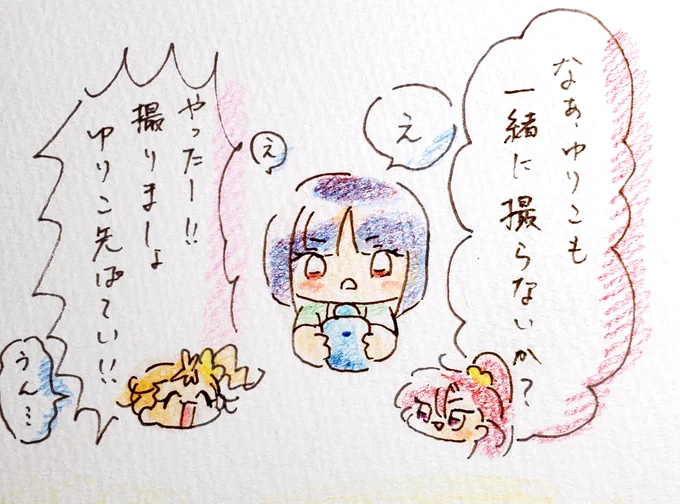 なぁ、ゆりこも
一緒に撮らないか?
え
え
やったー!!
撮りましょ
ゆりこ先ぱてい!!
うん…